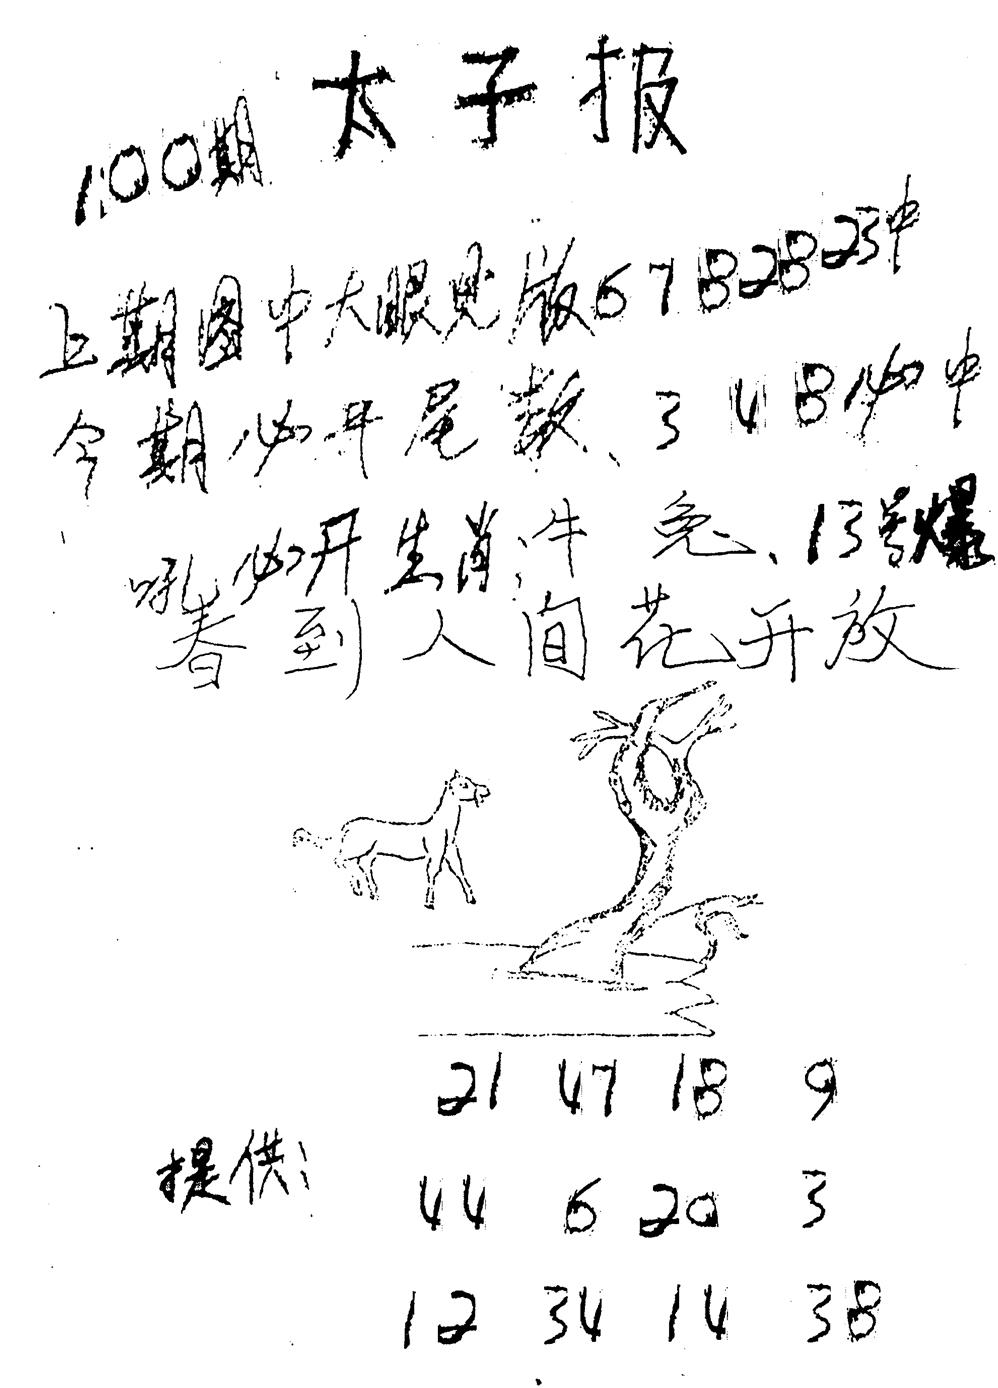 太子报
100期
上期图中大眼见版6 7 8 28 23中
今期必开尾数、3 4 8必中
必开生肖牛 兔、13号爆
春到人间花开放
21 47 18 9
提供:
44 6 20 3
12 34 14 38